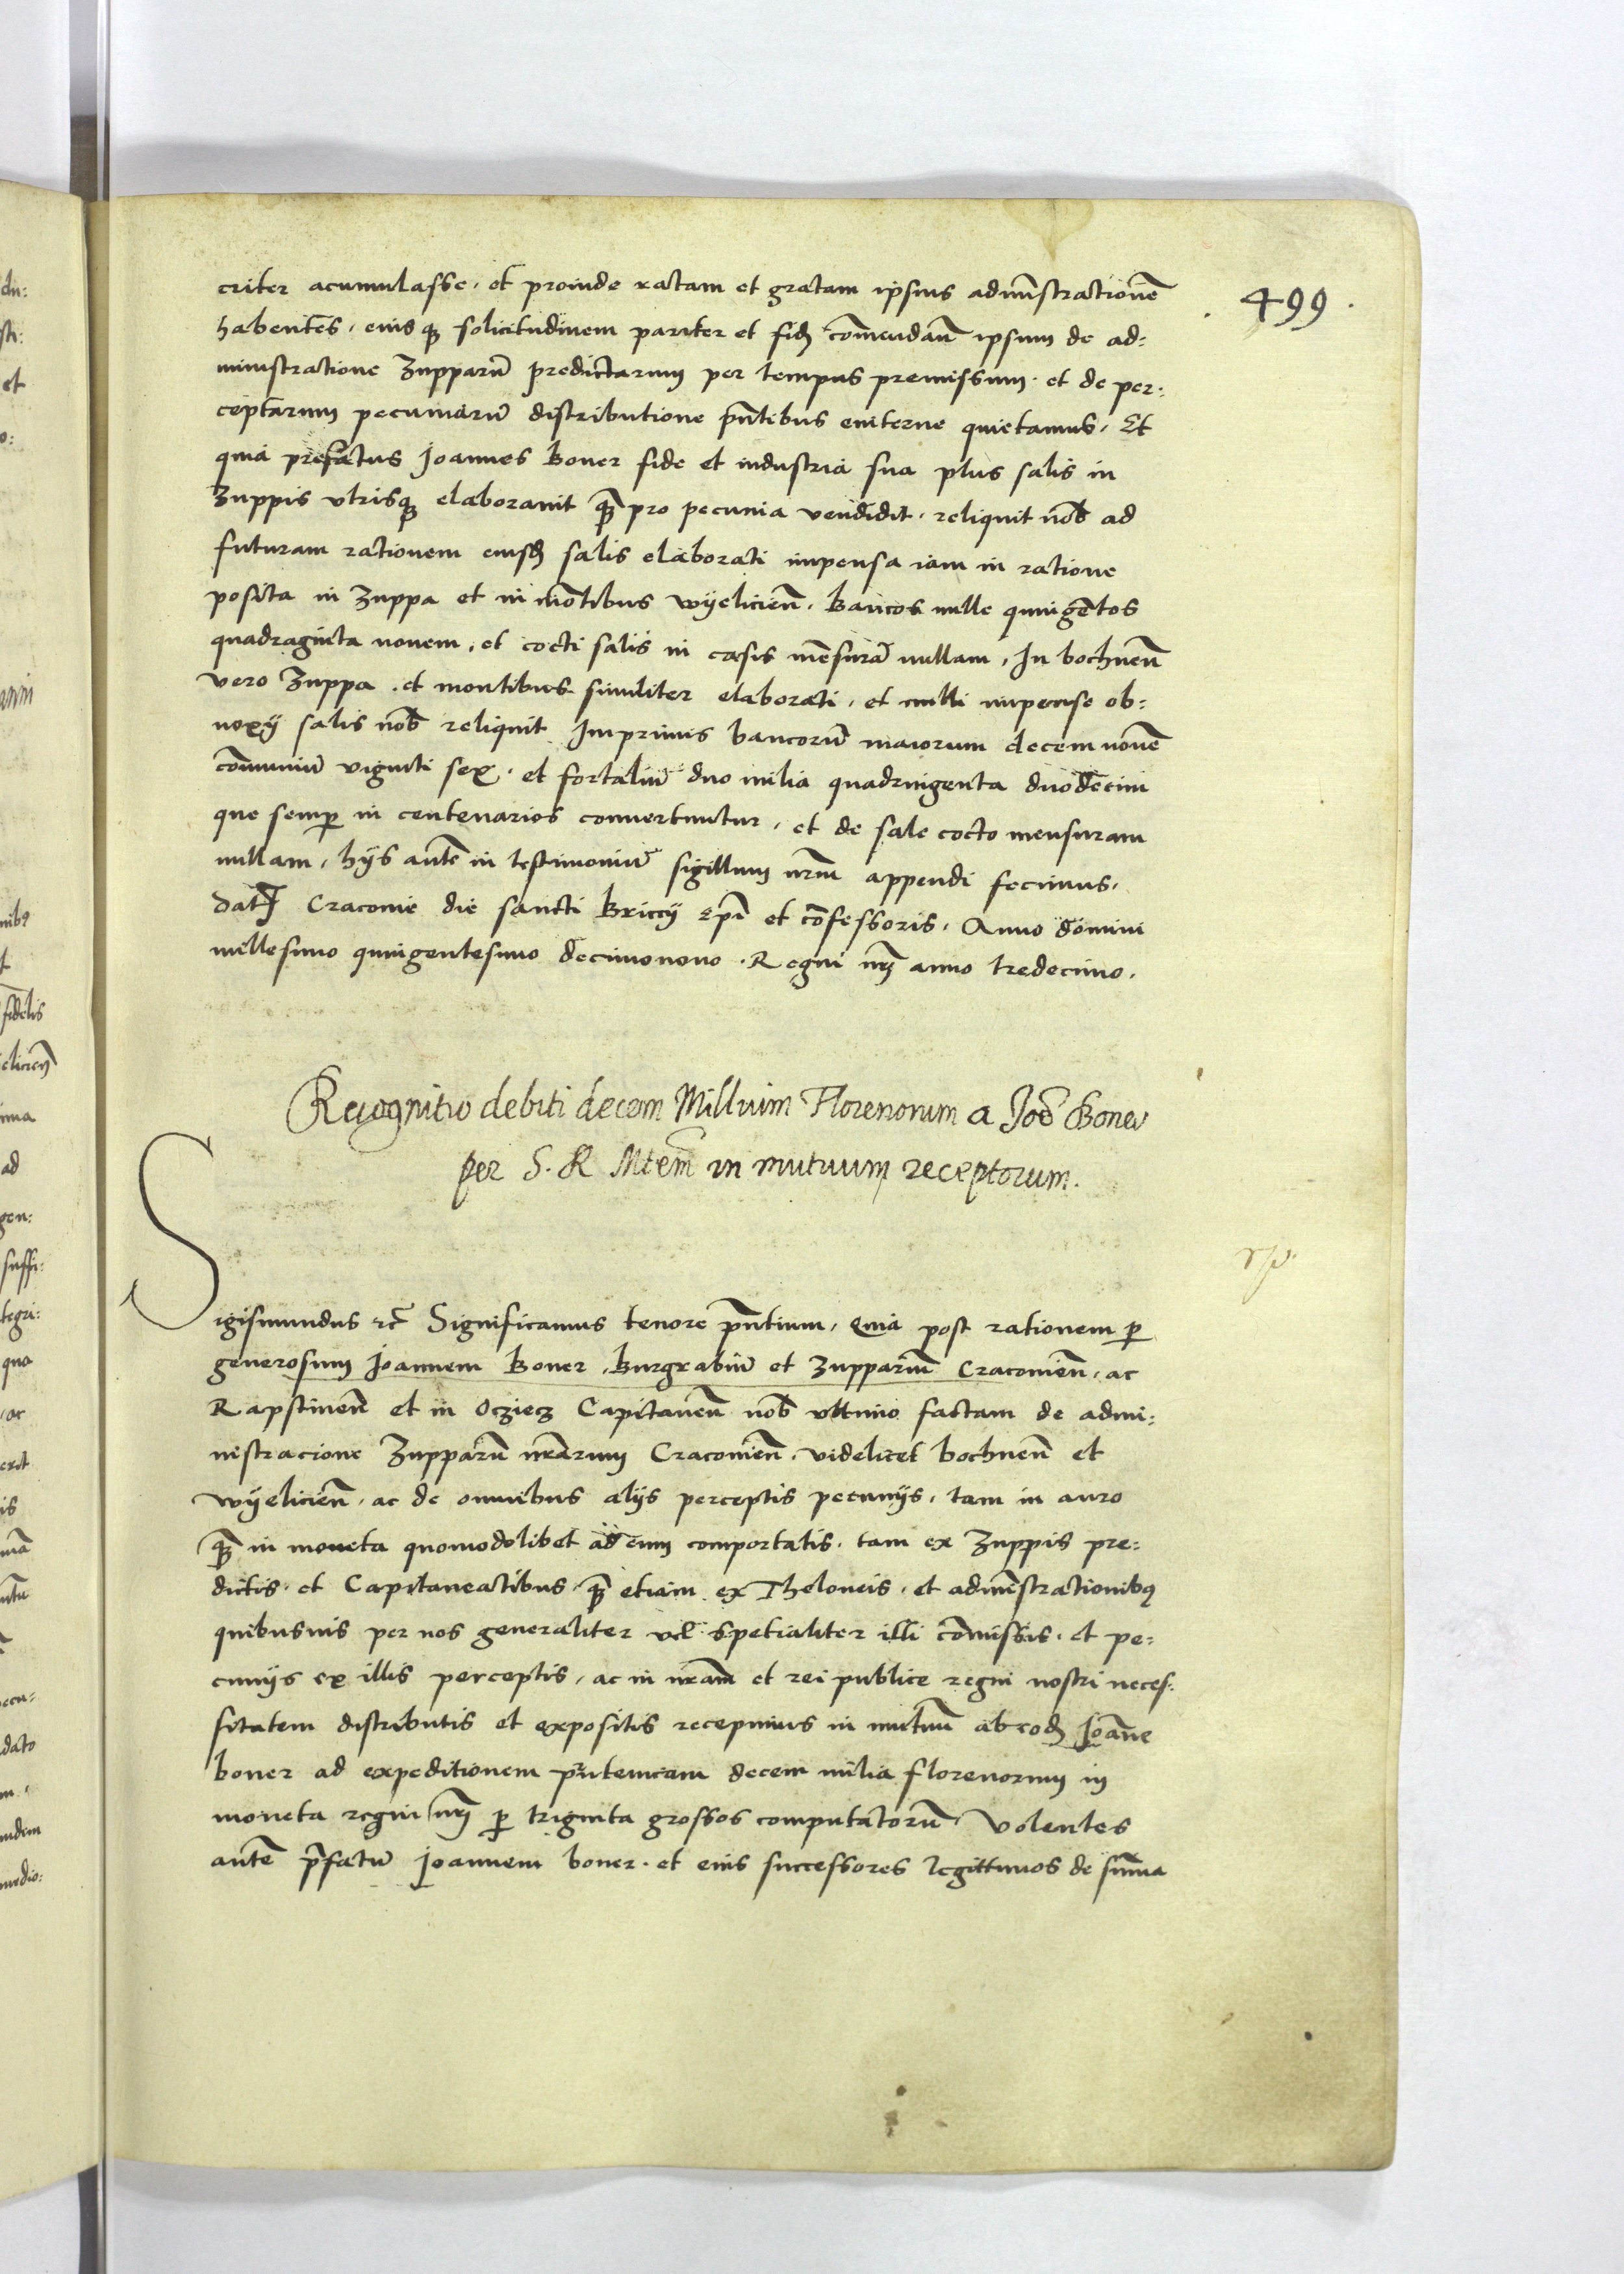 criter acumulasse, et proinde ratam et gratam ipsius adminstrationē
499
habentes, eiusq3 solicitudinem pariter et fid3 com̄endan̄ ipsum de ad:
ministratione Zupparū predictarum per tempus premissum. et de per:
ceptarum pecuniarū distributione pn̄tibus eviterne quietamus, Et
quia prefatus Joannes Boner fide et industria sua plus salis in
Zuppis utrisq3 elaboravit q̄3 pro pecunia vendidit, reliquit nob̄ ad
futuram rationem eiusd3 salis elaborati impensa iam in ratione
posita in Zuppa et in mōtibus wyelicien̄, Bancos mille quingētos
quadraginta novem, et cocti salis in casis mēsurā nullam, In bochnen̄
vero Zuppa, et montibus similiter elaborati, et nulli impense ob:
noxy salis nob̄ reliquit Imprimis bancorū maiorum decem novē
com̄uniū viginti sex, et fortaliū duo milia quadringenta duodecim
que semp̱ in centenarios convertuntur, et de sale cocto mensuram
nullam, hijs aut̄e in testimoniū sigillum nr̄m appendi fecimus,
Dat̄ Cracovie die sancti Briccy Ep̄i et cōfessoris, Anno domini
millesimo quingentesimo decimonono. Regni nr̄i anno tredecimo.
Recognitio debiti decem Millium Florenorum a Joē Boner
per S. R Mtem̄ in mutuum receptorum.
Sigismundus ꝛc̄ Significamus tenore pn̄tium, Quia post rationem p̱
generosum Joannem Boner, Burgrabiū et Zuppariū Cracovien̄, ac
Rapstinen̄ et in Ocziecz Capitaneū nob̄ ultimo factam de admi:
nistracione Zupparū nr̄arum Cracovien̄, videlicet bochnen̄ et
wyelicien̄, ac de omnibus alijs perceptis pecunijs, tam in auro
q̄3 in moneta quomodolibet ad eum comportatis, tam ex Zuppis pre:
dictis, et Capitaneatibus, q̄3 etiam ex Theloneis, et adminēstrationibꝰ
quibusvis per nos generaliter vel spetialiter illi com̄issis, et pe:
cunijs ex illis perceptis, ac in nr̄am et rei publice regni nostri neces:
sitatem distributis et expositis recepimus in mutuū ab eod3 Joāne
boner ad expeditionem prutenicam decem milia florenorum in
moneta regni nr̄i p̱ triginta grossos computatorū, Volentes
aut̄e p̄fatū Joannem boner, et eius successores legittimos de sum̄a